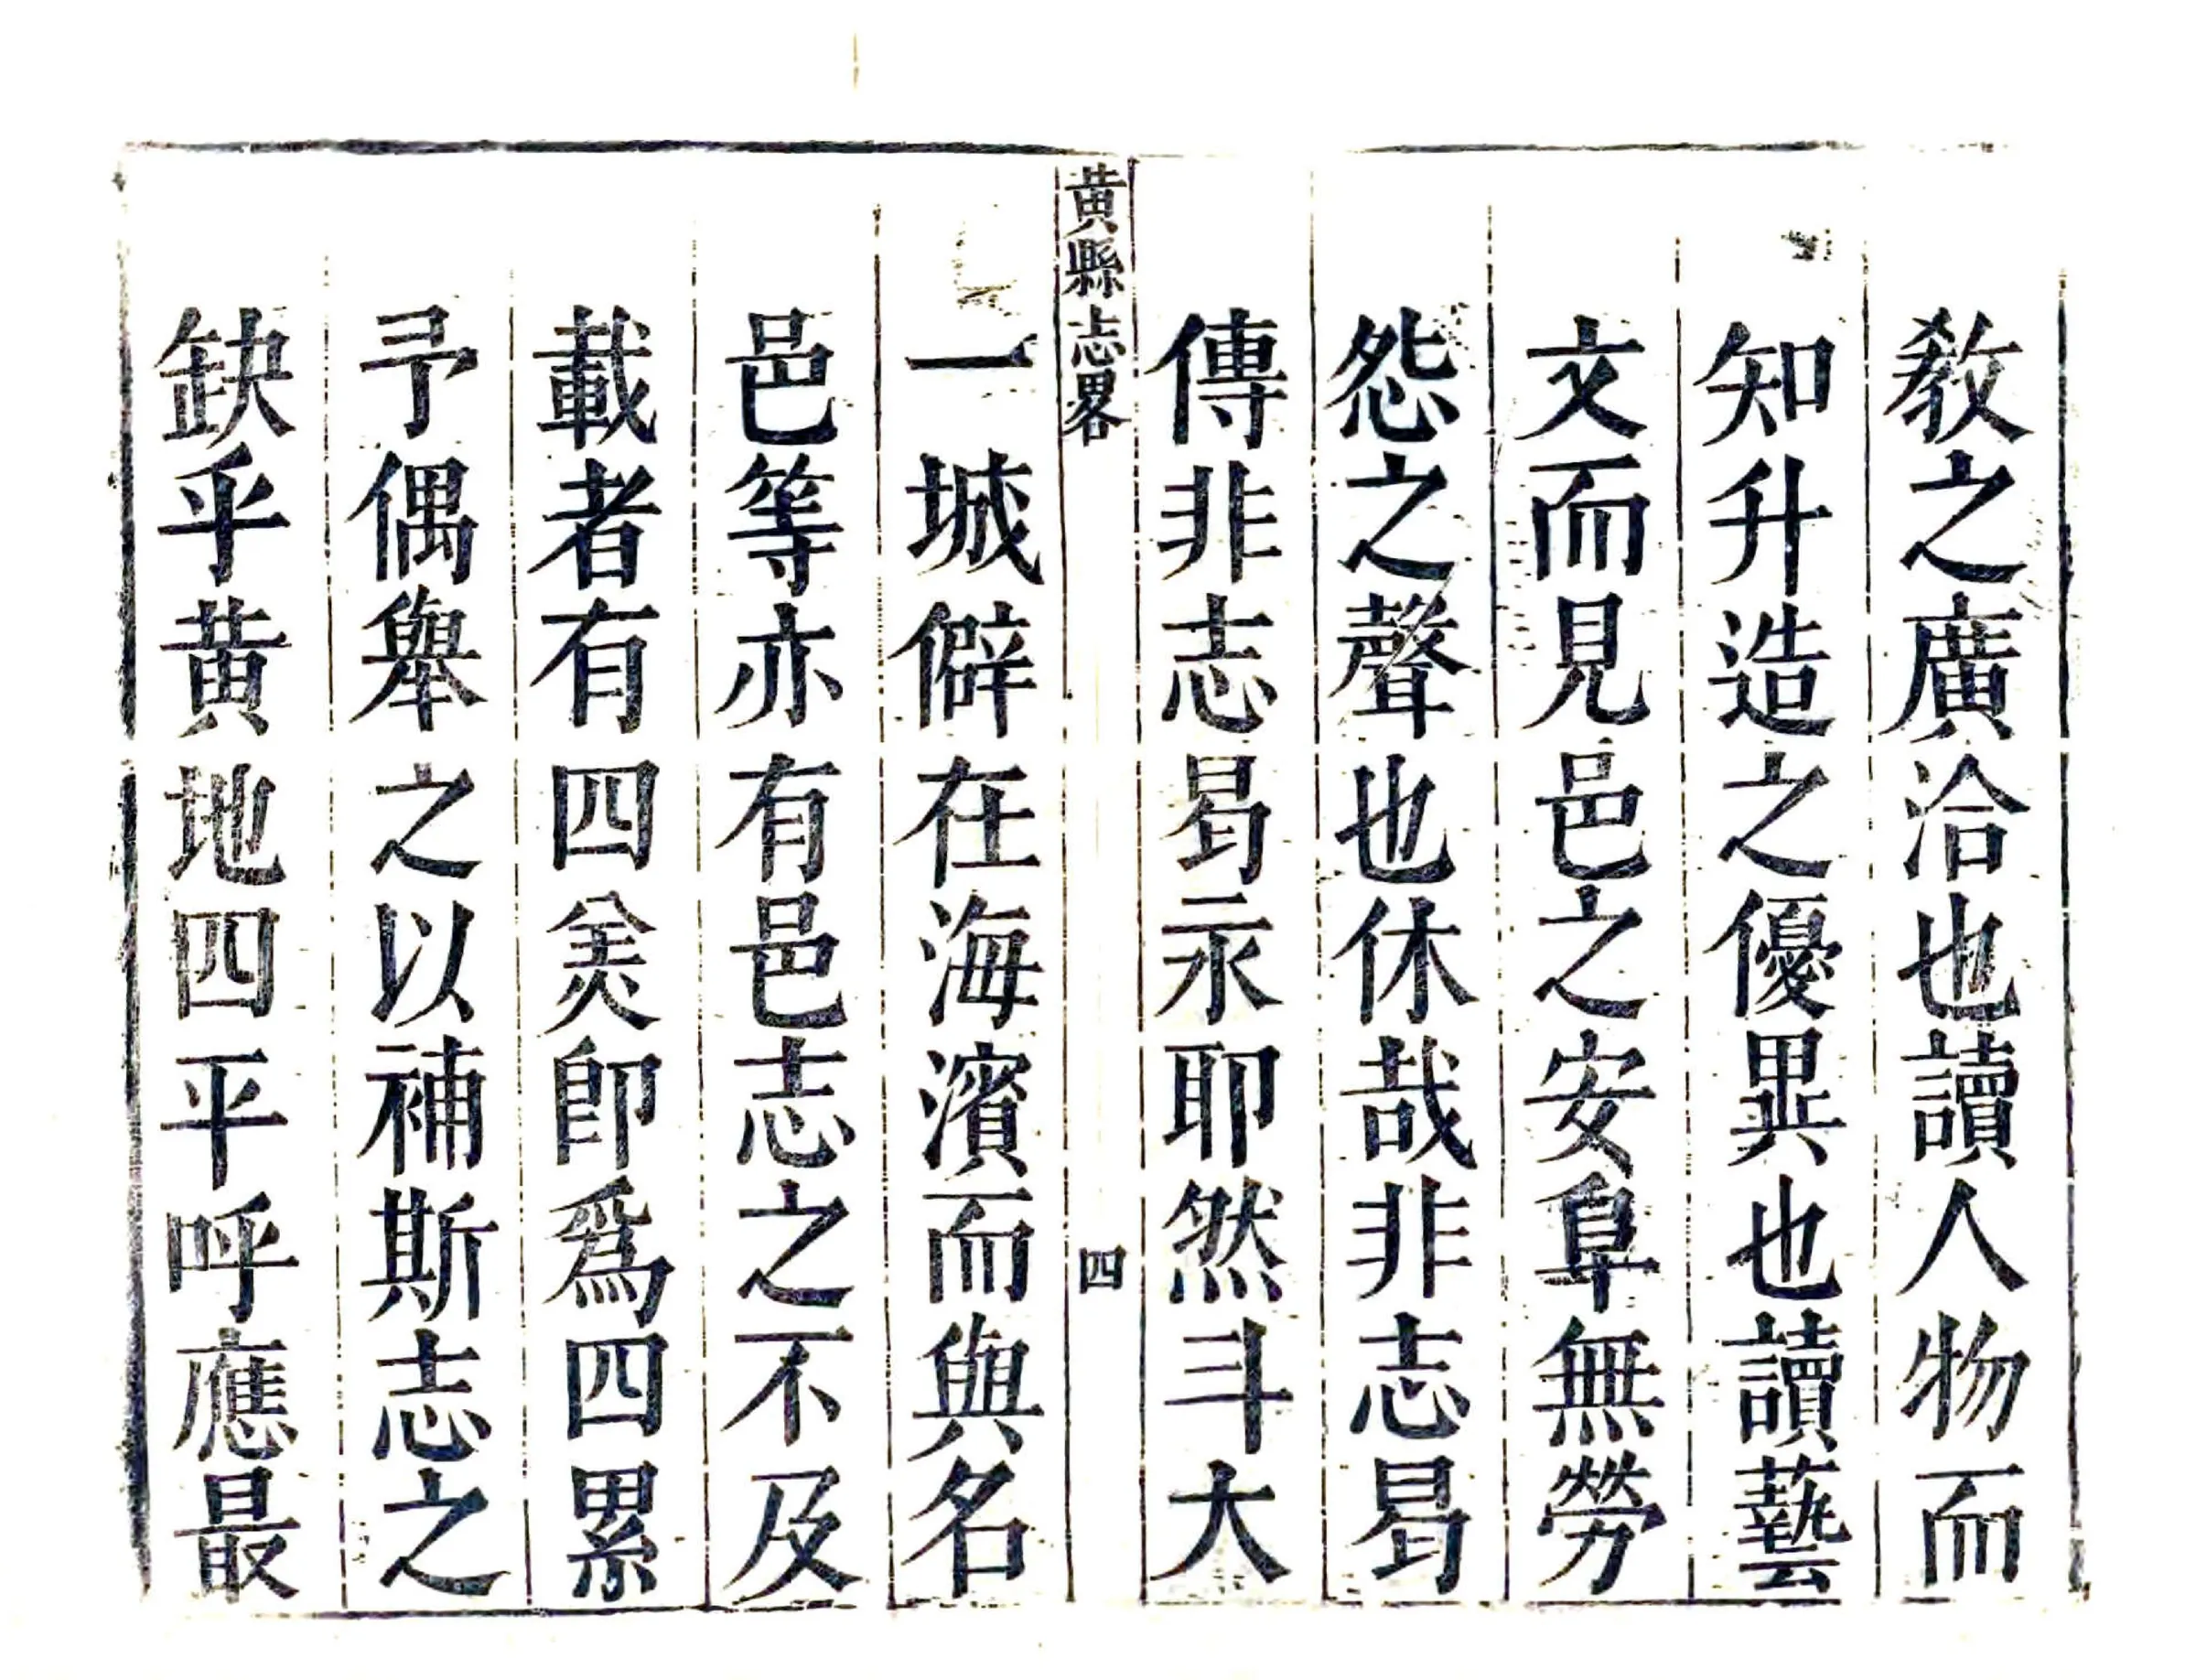 教之廣洽也讀人物而
知升造之優異也讀藝
文而見邑之安阜無勞
怨之聲也休哉非志曷
傳非志曷永耶然斗大
黄縣志畧
四
一城僻在海濱而與名
邑等亦有邑志之不及
載者有四羙卽爲四累
予偶舉之以補斯志之
缺乎黄地四平呼應最